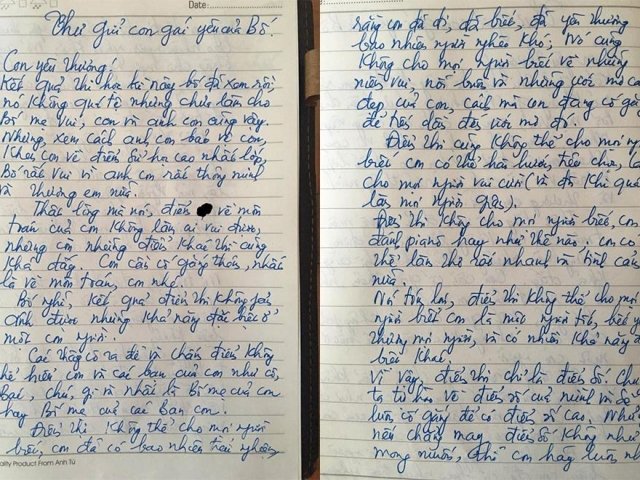 Date:
Thư gửi con gái yêu của Bố.
Con yêu thương!
Kết quả thi học kì này bố đã xem rồi,
nó không quá tệ nhưng chưa làm cho
Bố mẹ vui, con và anh con cũng vậy.
Nhưng, xem cách anh con bảo vệ con,
khen con về điểm sử học cao nhất lớp,
Bố rất vui vì anh con rất thông minh
và thương em nữa.
Thật lòng mà nói, điểm về môn
toán của con không làm ai vui được,
nhưng còn những điểm khác thì cũng
khá đấy. Con cần cố gắng thêm, nhất
là về môn toán, con nhé.
Bố nghĩ, kết quả điểm thi không phản
ánh được những khả năng đặc biệt ở
một con người.
Các thầy cô ra đề và chấm điểm không
thể hiểu con và các bạn của con như cô,
Bác, chú, gì và nhất là Bố mẹ của con
hay Bố mẹ của các bạn con.
Điểm thi không thể cho mọi người
biết, con đã có bao nhiêu trải nghiệm,
ality Product From Anh Tú
rằng con đã đi, đã biết, đã yêu thương
bao nhiêu người nghèo khó; Nó cũng
không cho mọi người biết về những
niềm vui, nỗi buồn và những ước mơ cao
đẹp của con, cách mà con đang cố gắ
để tiến dần đến ước mơ đó.
Điểm thi cũng không thể cho mọi ng
biết con có thể hài hước, tiếu
cho mọi người vui cười (và đôi khi quá
làm mọi người giận).
Điểm thi không cho mọi người biết, con
đánh piano hay như thế nào. con có
thể làm thơ rất nhanh và tình cảm
nữa.
Nói tóm lại, điểm thi không thể cho mọi
người biết con là một người tốt, biết yêu
thương mọi người, và có nhiều khả năng đặ
biệt khác.
Vì vậy, điểm thi chỉ là điểm số. Chú
ta tự hào về điểm số của mình và
luôn cố gắng để có điểm số cao. Như
nếu chẳng may điểm số không như
mong muốn, thì con hãy luôn nh